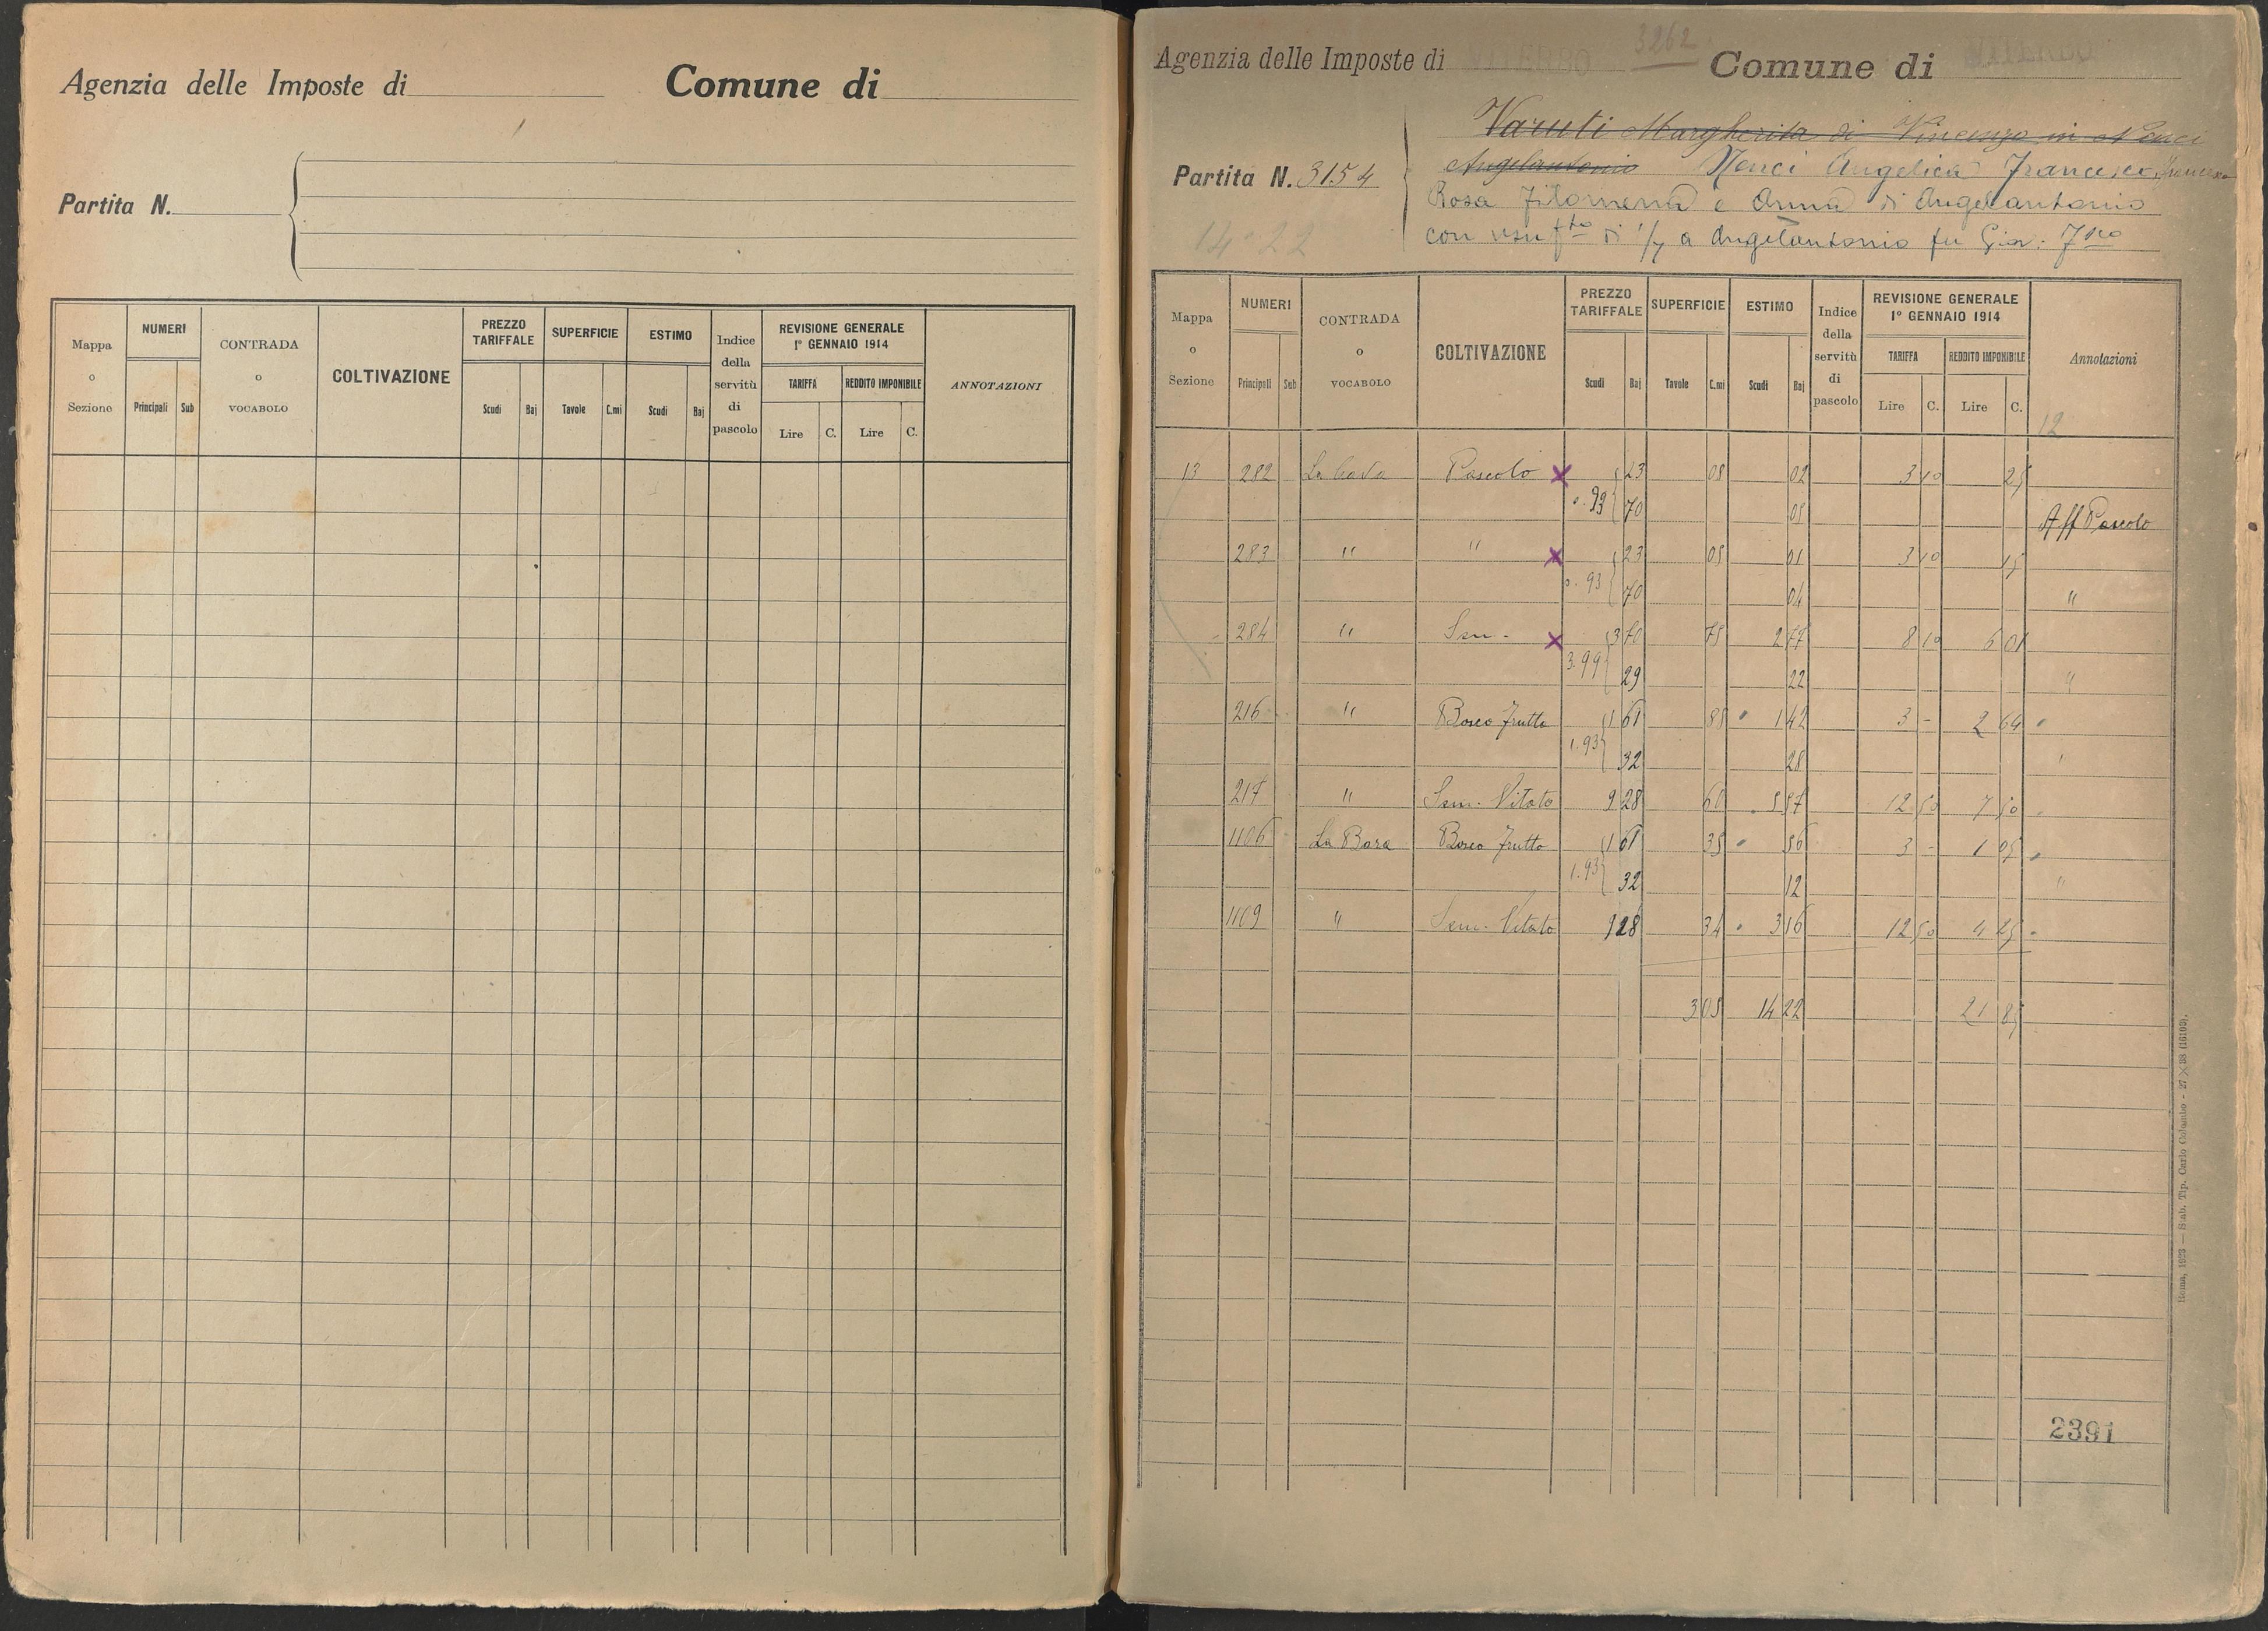 Agenzia delle Imposte di Comune di
Partita N.
Mappa o Sezione NUMERI Principali Sub CONTRADA o VOCABOLO COLTIVAZIONE PREZZO TARIFFALE Scudi Baj SUPERFICIE Tavole C.mi ESTIMO Scudi Baj Indice della servitù di pascolo REVISIONE GENERALE 1° GENNAIO 1914 TARIFFA Lire C. REDDITO IMPONIBILE Lire C. ANNOTAZIONI
3262
Agenzia delle Imposte di VITERBO Comune di VITERBO
Varuti Margherita di Vincenzo in Nenci
Angelantonio Nenci Angelica Francesco, Francesca
Partita N. 3154
Rosa Filomena e Anna di Angelantonio
con usuftto di 1/7 a Angelantonio fu Gio:
14-22
Mappa o Sezione NUMERI Principali Sub CONTRADA o VOCABOLO COLTIVAZIONE PREZZO TARIFFALE Scudi Baj SUPERFICIE Tavole C.mi ESTIMO Scudi Baj Indice della servitù di pascolo REVISIONE GENERALE 1° GENNAIO 1914 TARIFFA Lire C. REDDITO IMPONIBILE Lire C. Annotazioni
12
13 282 La Cava Pascolo x 23 08 02 3 10 25
0.93 70 05 Aff Pascolo
283 " " x 23 05 01 3 10 15
0.93 70 04 "
284 " Sem. x 3 70 75 2 77 8 10 6 01
3.99 29 22 "
216 " Bosco frutto 1 61 88 1 42 3 - 2 64
1.93 32 28 "
217 " Sem. Vitato 9 28 60 5 57 12 50 7 50
1106 La Bara Bosco frutto 1 61 35 56 3 - 1 05
1.93 32 12 "
1109 " Sem. Vitato 9 28 34 3 16 12 50 4 25
3 05 14 22 21 85
2391
Roma, 1923 — Stab. Tip. Carlo Colombo - 27×38 (16160).